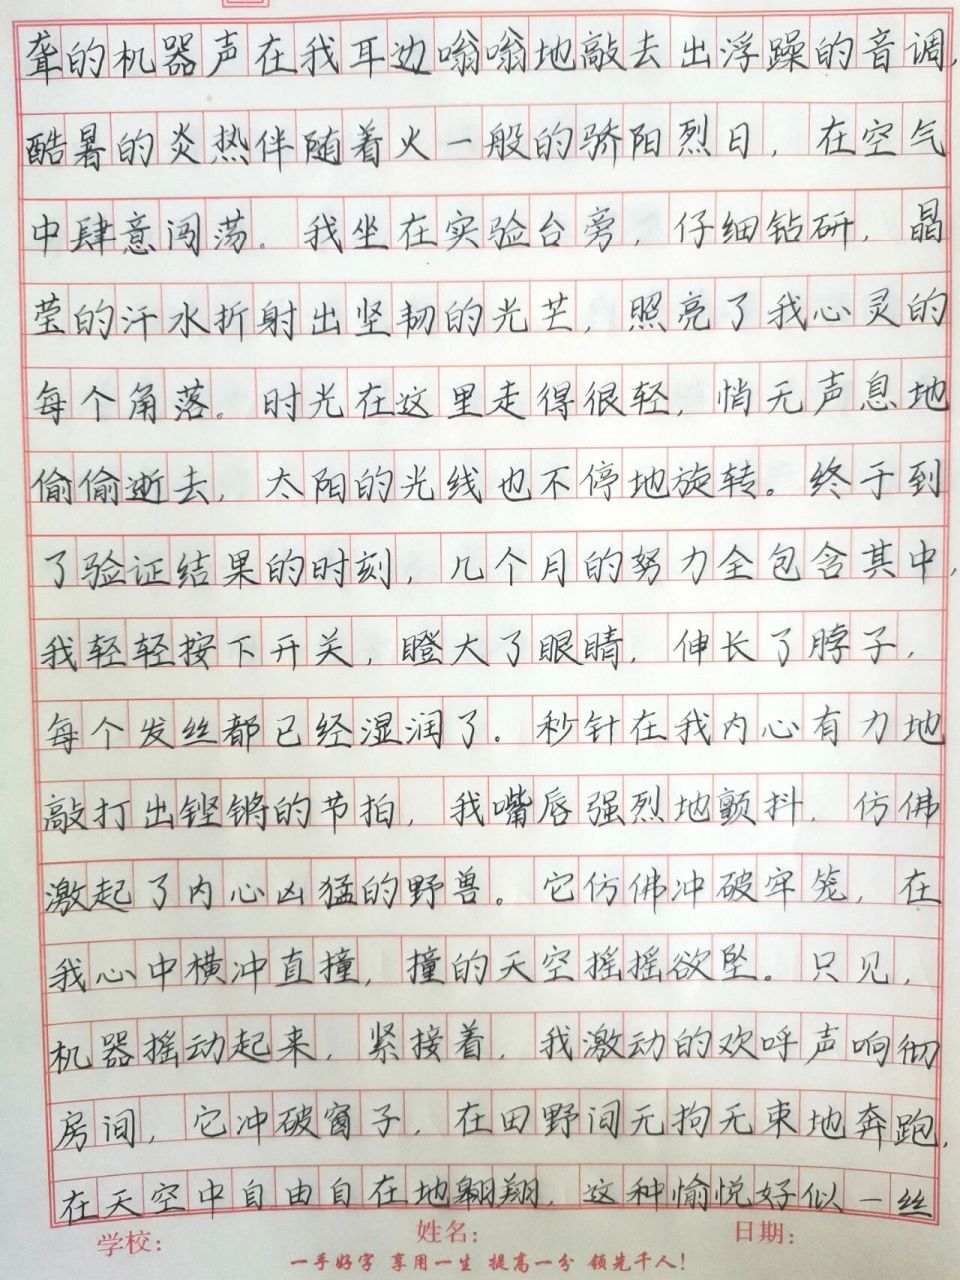 聋的机器声在我耳边嗡嗡地敲去出浮躁的音调，
酷暑的炎热伴随着火一般的骄阳烈日，在空气
中肆意闯荡。我坐在实验台旁，仔细钻研，晶
莹的汗水折射出坚韧的光芒，照亮了我心灵的
每个角落。时光在这里走得很轻，悄无声息地
偷偷逝去，太阳的光线也不停地旋转。终于到
了验证结果的时刻，几个月的努力全包含其中，
我轻轻按下开关，瞪大了眼睛，伸长了脖子，
每个发丝都已经湿润了。秒针在我内心有力地
敲打出铿锵的节拍，我嘴唇强烈地颤抖，仿佛
激起了内心凶猛的野兽。它仿佛冲破牢笼，在
我心中横冲直撞，撞的天空摇摇欲坠。只见，
机器摇动起来，紧接着，我激动的欢呼声响彻
房间，它冲破窗子，在田野间无拘无束地奔跑，
在天空中自由自在地翱翔，这种愉悦好似一丝
学校： 姓名： 日期：
一手好字 享用一生 提高一分 领先千人！